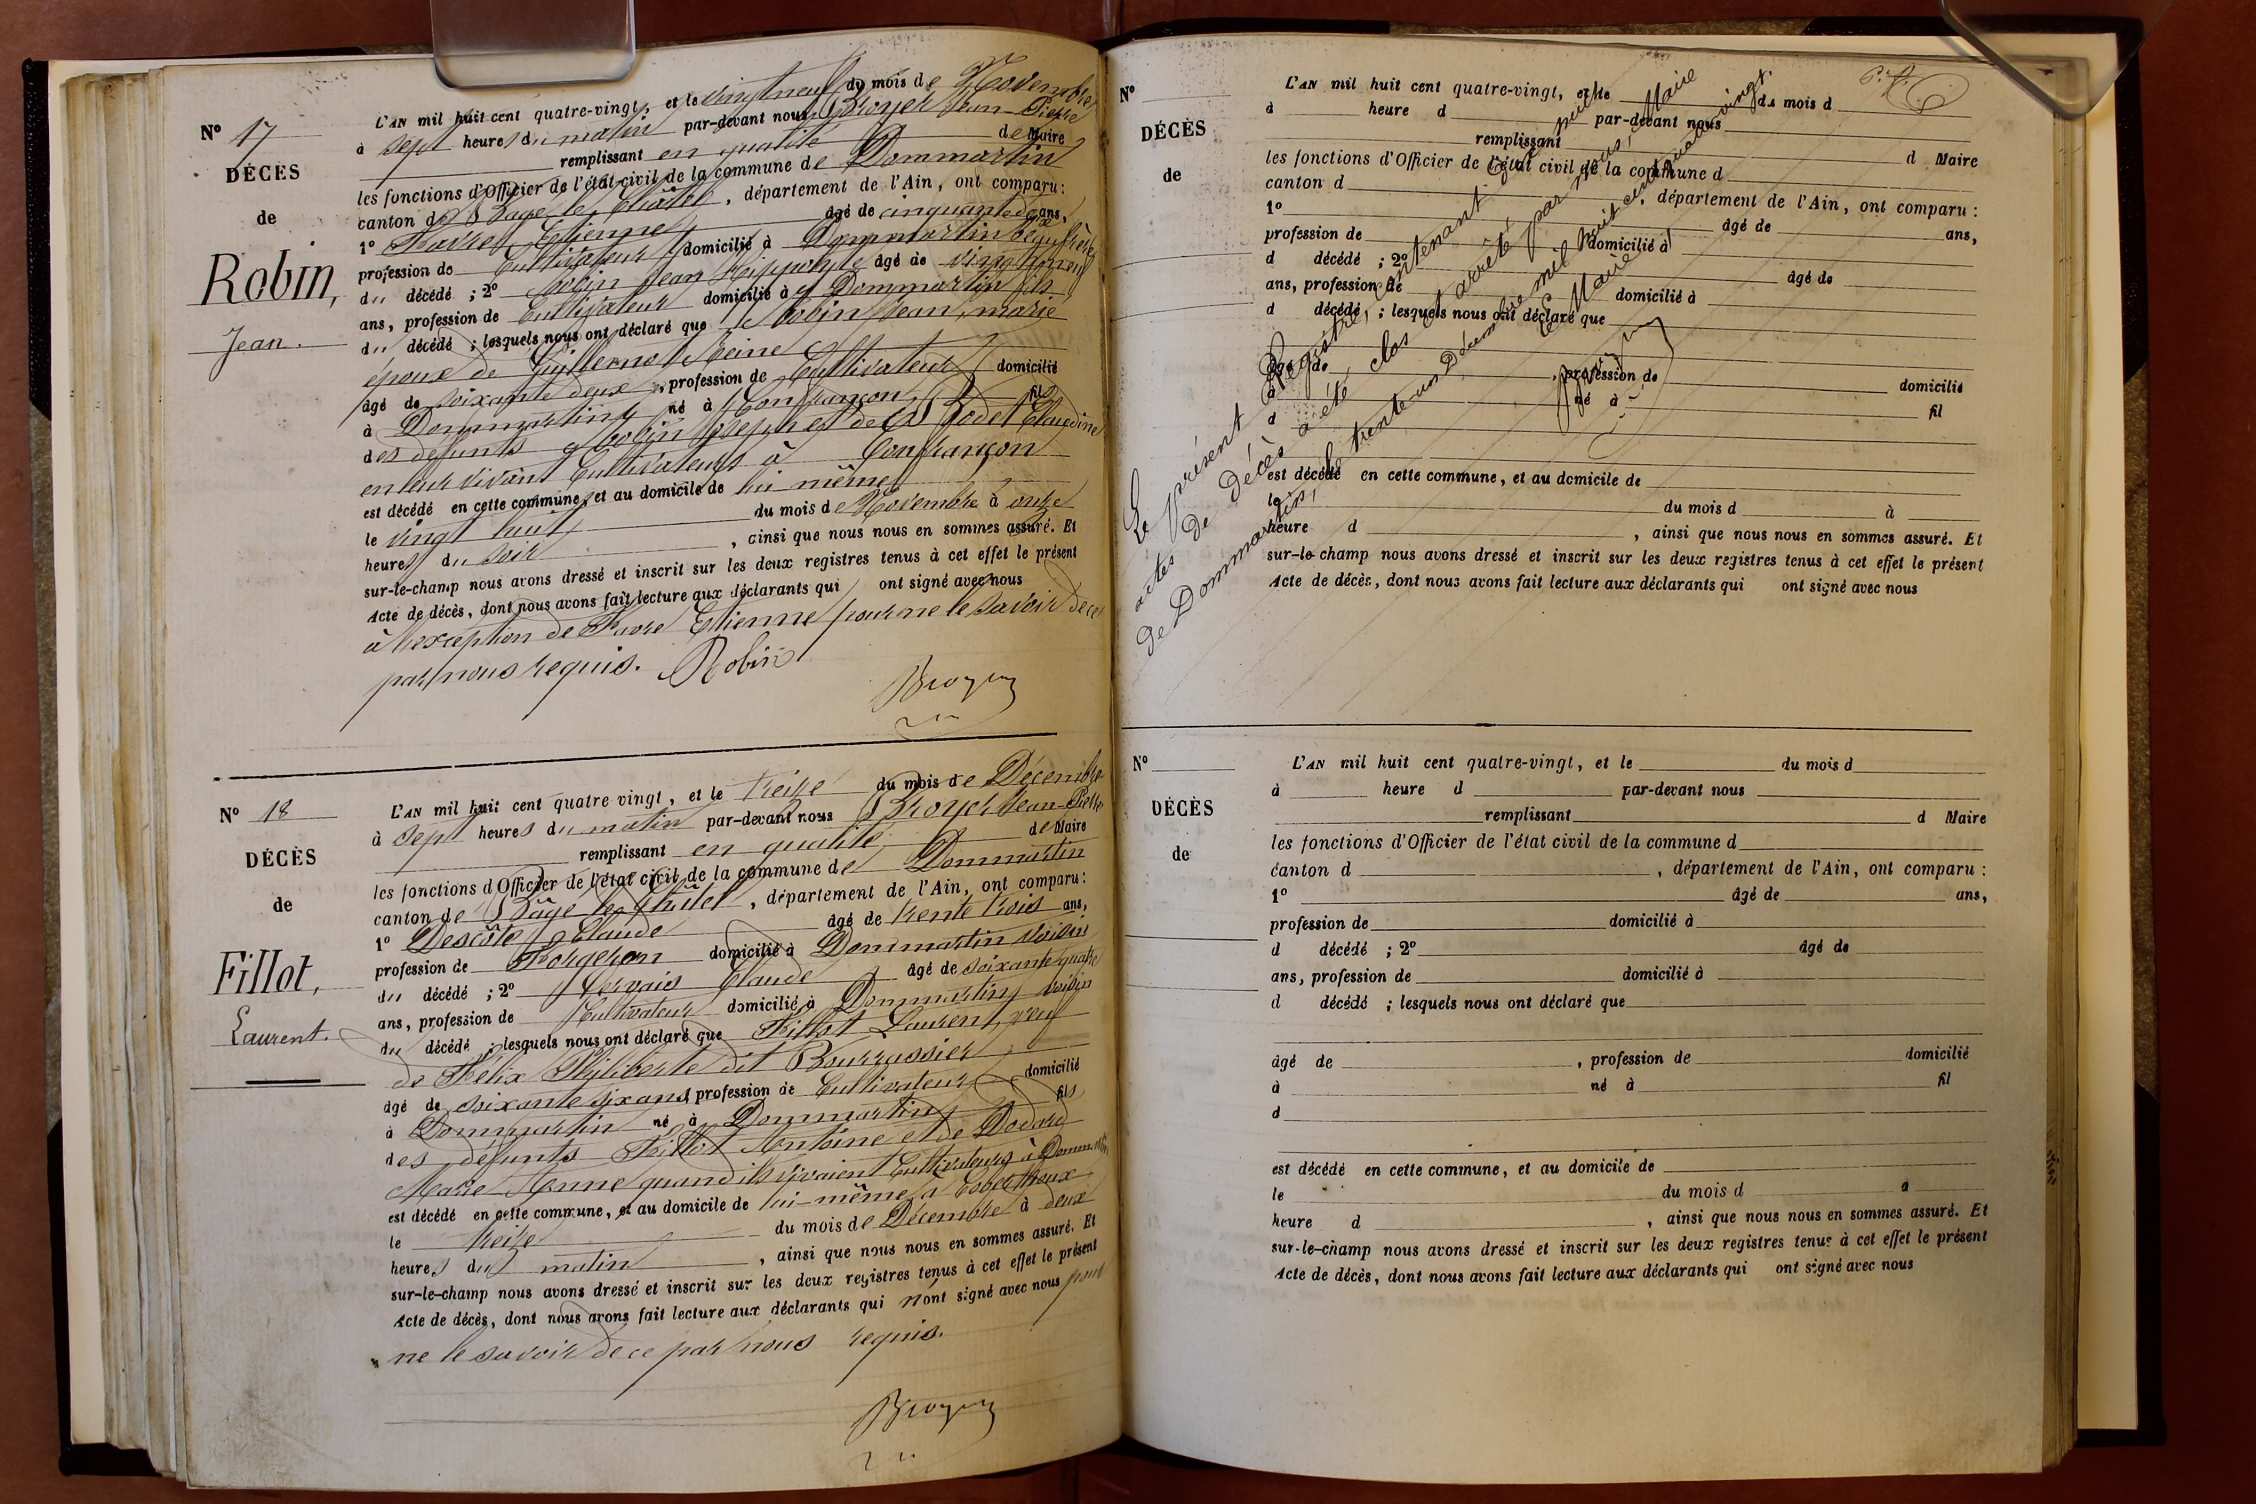 Nº 17
DÉCÈS
de
Robin,
Jean.
L'AN mil huit cent quatre-vingt, et le vingt neuf du mois de Novembre
à sept heures du matin par-devant nous Broyer Jean-Pierre
remplissant en qualité de Maire
les fonctions d'Officier de l'état civil de la commune de Dommartin
canton de Bagé-le-Châtel, département de l'Ain, ont comparu :
1º Favre Etienne âgé de cinquante ans,
profession de Cultivateur domicilié à Dommartin beau frère
du décédé ; 2º Robin Jean Hippolyte âgé de vingt neuf
ans, profession de Cultivateur domicilié à Dommartin fils
du décédé ; lesquels nous ont déclaré que Robin Jean, marie
époux de Guillermot Reine
âgé de soixante deux, profession de Cultivateur domicilié
à Dommartin né à Confrançon fils
des défunts Robin Joseph et de Rodet Claudine
en leur vivant Cultivateurs à Confrançon
est décédé en cette commune, et au domicile de lui même
le vingt huit du mois de Novembre à onze
heures du soir, ainsi que nous nous en sommes assuré. Et
sur-le-champ nous avons dressé et inscrit sur les deux registres tenus à cet effet le présent
Acte de décès, dont nous avons fait lecture aux déclarants qui ont signé avec nous
à l'exception de Favre Etienne pour ne le savoir de ce
par nous requis. Robin
Broyer
Nº 18
DÉCÈS
de
Fillot,
Laurent.
L'AN mil huit cent quatre vingt, et le treize du mois de Décembre
à sept heures du matin par-devant nous Broyer Jean-Pierre
remplissant en qualité de Maire
les fonctions d'Officier de l'état civil de la commune de Dommartin
canton de Bâgé le Châtel, département de l'Ain, ont comparu :
1º Descôte Claude âgé de trente trois ans,
profession de Forgeron domicilié à Dommartin voisin
du décédé ; 2º Gervais Claude âgé de soixante quatre
ans, profession de Cultivateur domicilié à Dommartin voisin
du décédé ; lesquels nous ont déclaré que Fillot Laurent, veuf
de Félix Philiberte dit Bourrassier
âgé de soixante six ans, profession de Cultivateur domicilié
à Dommartin né à Dommartin fils
des défunts Fillot Antoine et de Dodard
Marie Anne quand ils vivaient Cultivateurs à Dommartin
est décédé en cette commune, et au domicile de lui-même à
le treize du mois de Décembre à deux
heures du matin, ainsi que nous nous en sommes assuré. Et
sur-le-champ nous avons dressé et inscrit sur les deux registres tenus à cet effet le présent
Acte de décès, dont nous avons fait lecture aux déclarants qui n'ont signé avec nous pour
ne le savoir de ce par nous requis.
Broyer
Nº
DÉCÈS
de
L'AN mil huit cent quatre-vingt, et le du mois d
à heure d par-devant nous
remplissant d Maire
les fonctions d'Officier de l'état civil de la commune d
canton d , département de l'Ain, ont comparu :
1º âgé de ans,
profession de domicilié à
d décédé ; 2º âgé de
ans, profession de domicilié à
d décédé ; lesquels nous ont déclaré que
âgé de , profession de domicilié
à né à fil
d
est décédé en cette commune, et au domicile de
le du mois d à
heure d , ainsi que nous nous en sommes assuré. Et
sur-le-champ nous avons dressé et inscrit sur les deux registres tenus à cet effet le présent
Acte de décès, dont nous avons fait lecture aux déclarants qui ont signé avec nous
Le présent Registre, contenant
actes de Décès a été clos et arrêté par nous, Maire
de Dommartin, le trente-un Décembre mil huit cent quatre vingt.
Le Maire
Broyer
Nº
DÉCÈS
de
L'AN mil huit cent quatre-vingt, et le du mois d
à heure d par-devant nous
remplissant d Maire
les fonctions d'Officier de l'état civil de la commune d
canton d , département de l'Ain, ont comparu :
1º âgé de ans,
profession de domicilié à
d décédé ; 2º âgé de
ans, profession de domicilié à
d décédé ; lesquels nous ont déclaré que
âgé de , profession de domicilié
à né à fil
d
est décédé en cette commune, et au domicile de
le du mois d à
heure d , ainsi que nous nous en sommes assuré. Et
sur-le-champ nous avons dressé et inscrit sur les deux registres tenus à cet effet le présent
Acte de décès, dont nous avons fait lecture aux déclarants qui ont signé avec nous